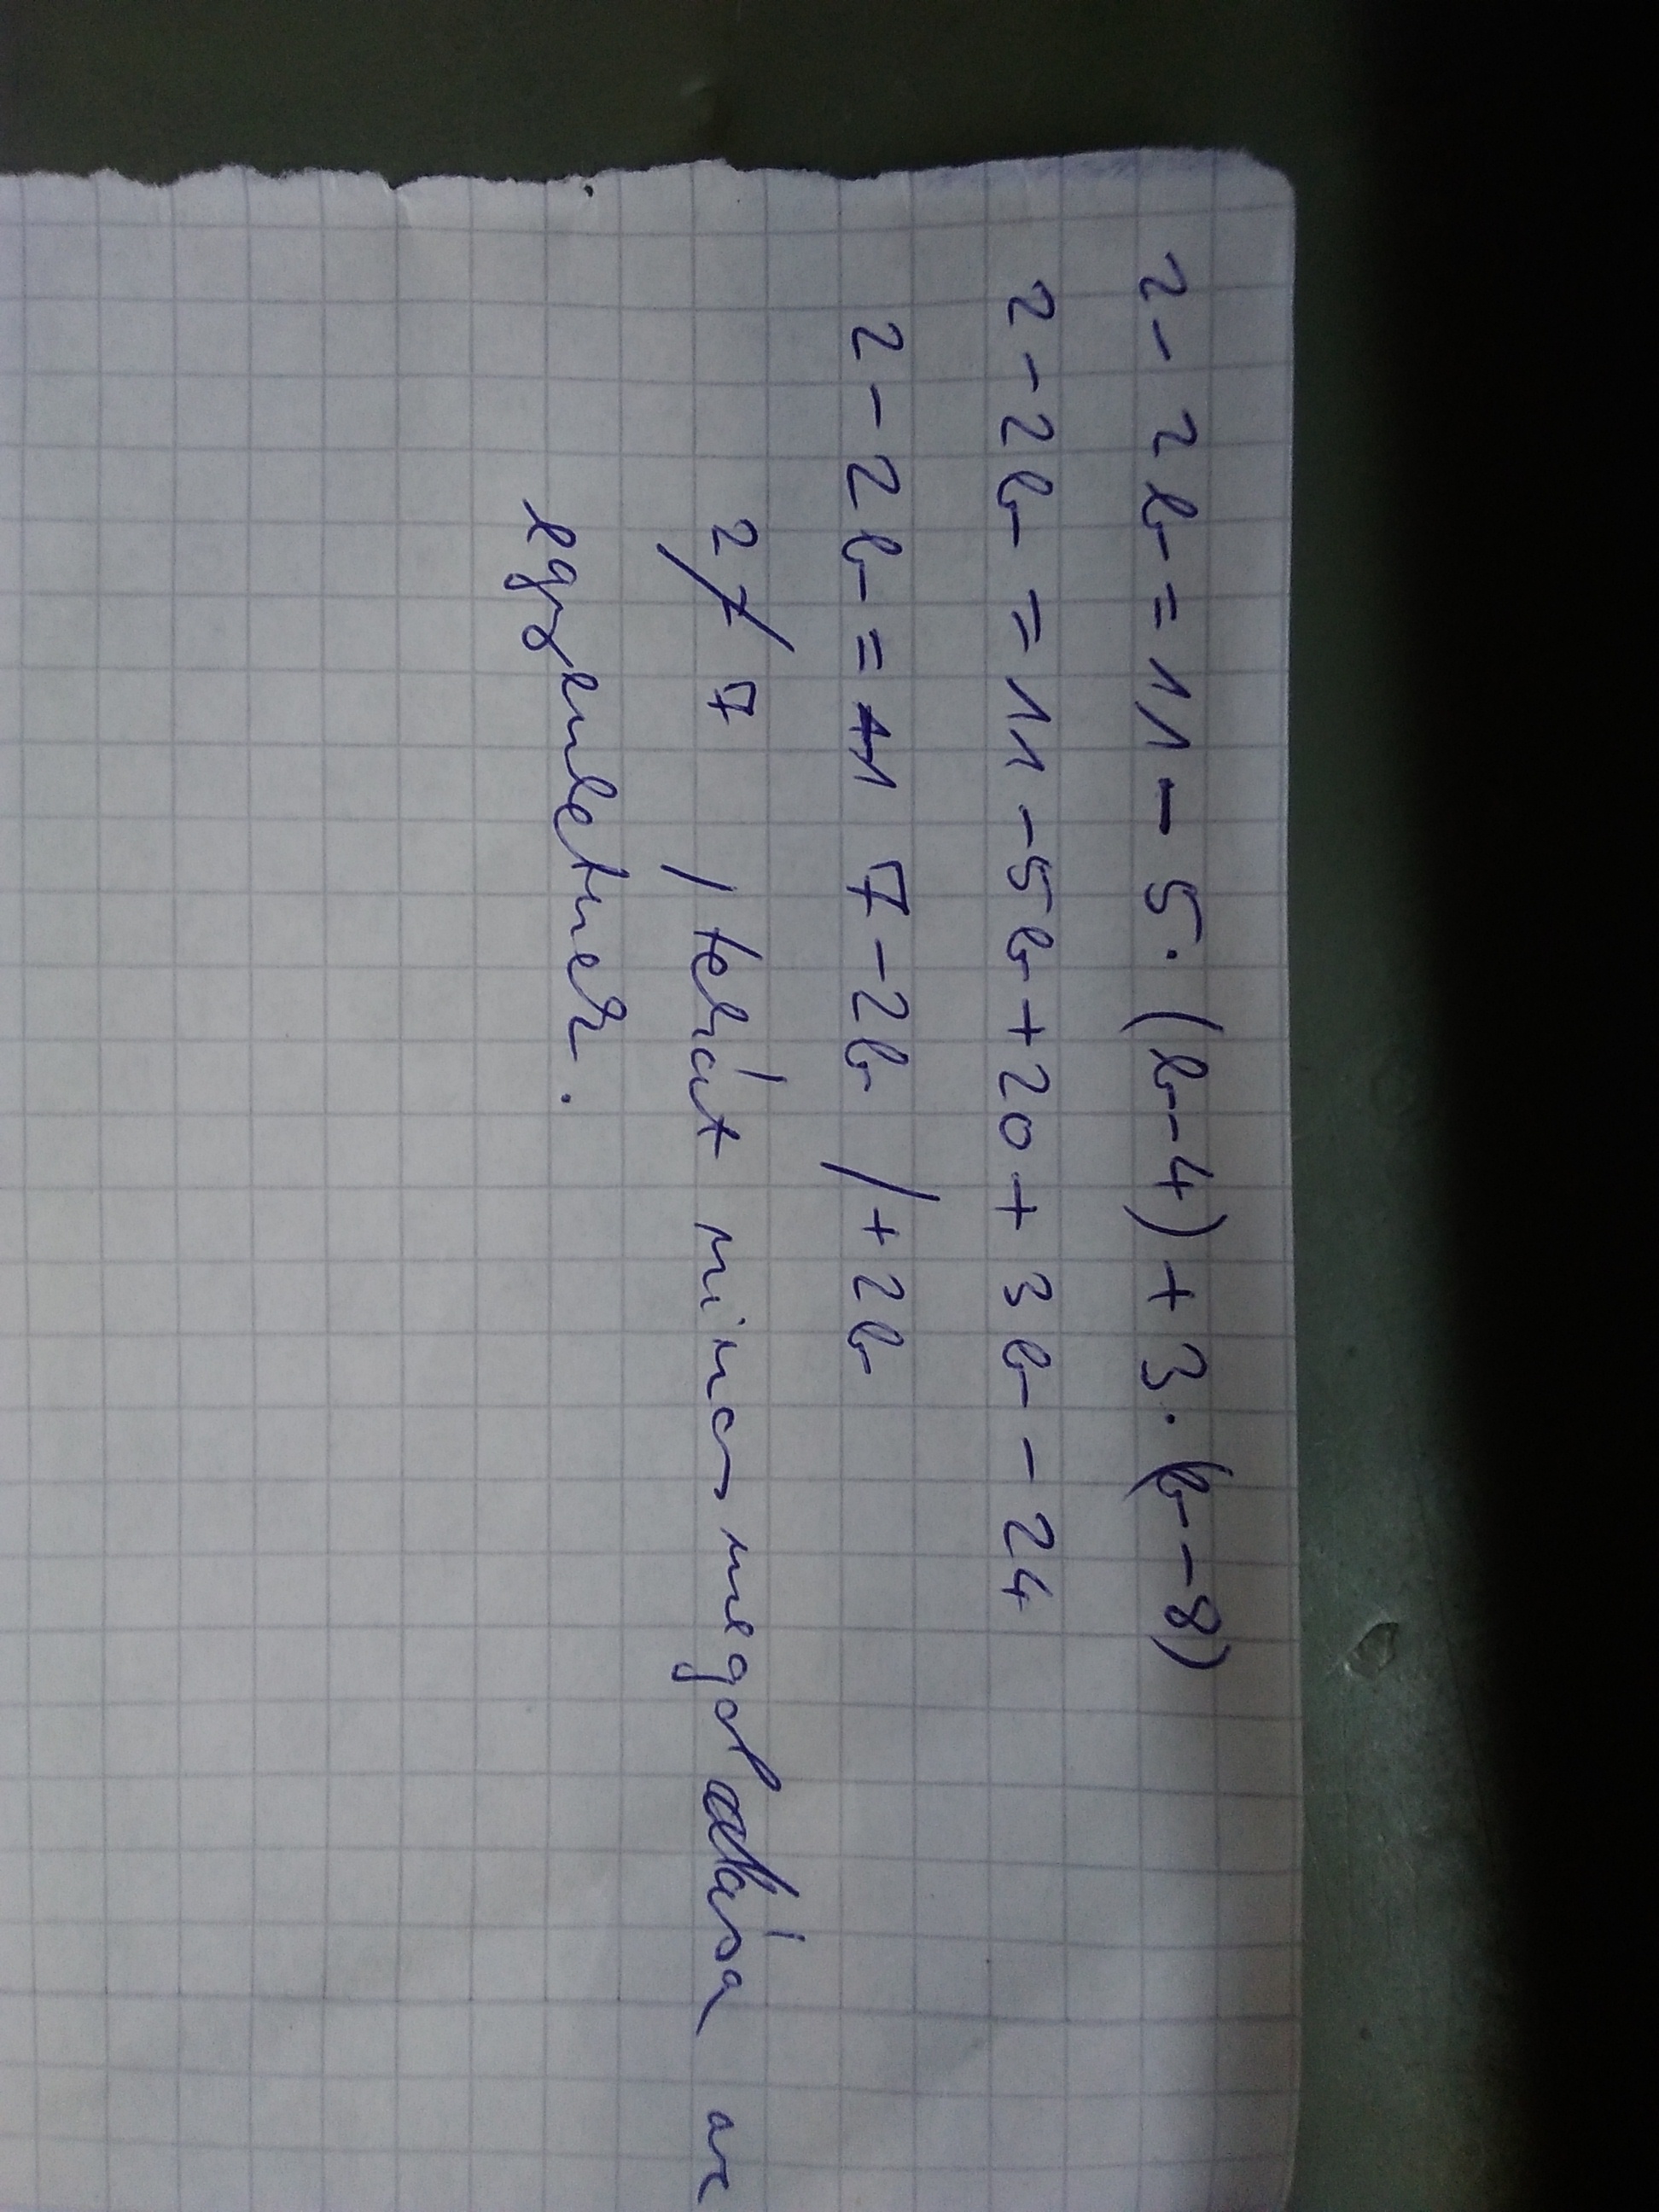 2 - 2b = 11 - 5·(b-4) + 3·(b-8)
2 - 2b = 11 - 5b + 20 + 3b - 24
2 - 2b = 7 - 2b /+2b
2 ≠ 7 / tehát nincs megoldása az
egyenletnek.